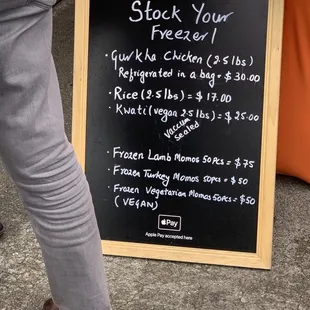 Stock Your
Freezer!
• Gurkha Chicken (2.5 lbs)
Refrigerated in a bag = $30.00
• Rice (2.5 lbs) = $17.00
• Kwati (vegan 2.5 lbs) = $25.00
Vaccum
Sealed
• Frozen Lamb Momos 50pcs = $75
• Frozen Turkey Momos 50pcs = $50
• Frozen Vegetarian Momos 50pcs = $50
(VEGAN)
Pay
Apple Pay accepted here